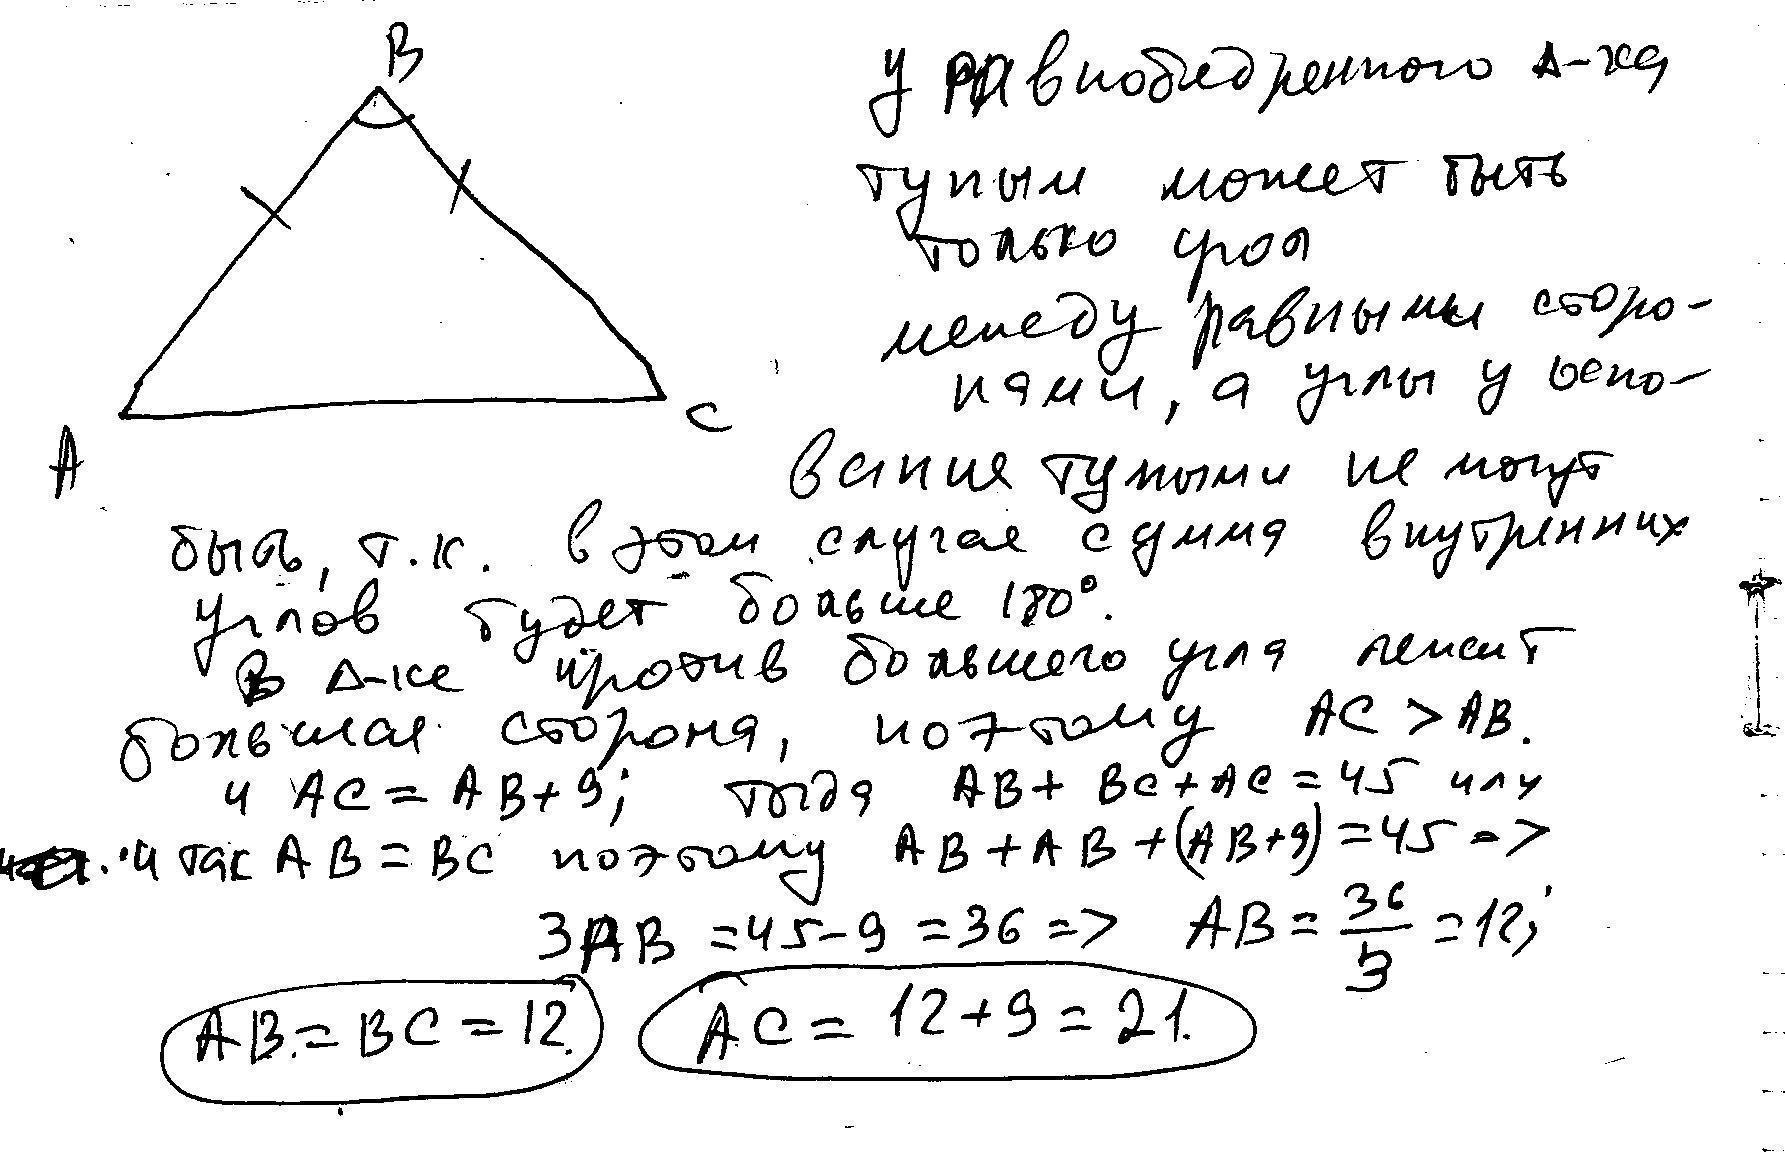 B
A
C
у равнобедренного Δ-ка
тупым может быть
только угол
между равными сторо-
нами, а углы у осно-
вания тупыми не могут
быть, т.к. в этом случае сумма внутренних
углов будет больше 180°.
В Δ-ке против большего угла лежит
большая сторона, поэтому AC > AB.
и AC = AB + 9; тогда AB + BC + AC = 45 или
и так AB = BC поэтому AB + AB + (AB + 9) = 45 =>
3AB = 45 - 9 = 36 => AB = 36/3 = 12;
AB = BC = 12. AC = 12 + 9 = 21.